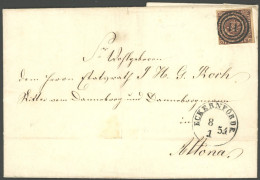 Sr Wohlgeboren
dem Herrn Etatsrath J. H. G. Koch
Ritter vom Dannebrog und Dannebrogsmann
in
Altona.
ECKERNFÖRDE
8
1 54